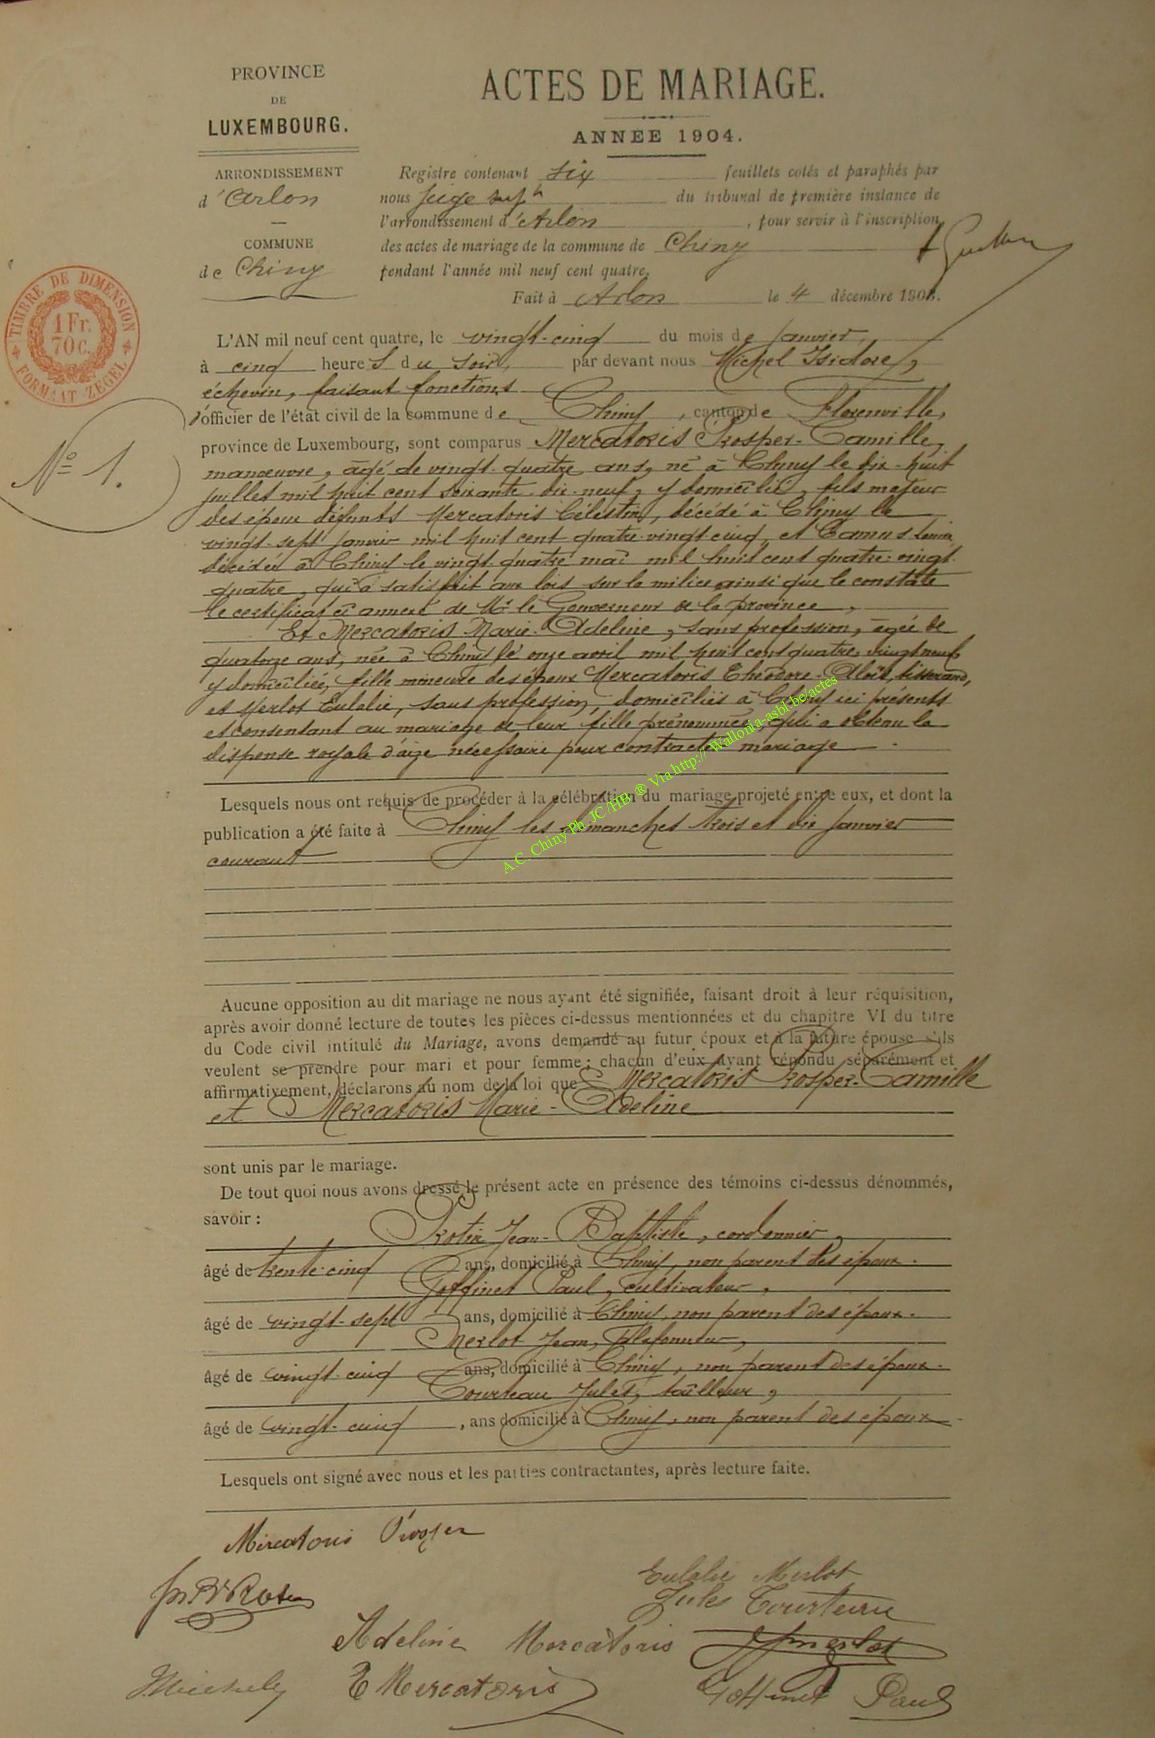 PROVINCE
DE
LUXEMBOURG.
ARRONDISSEMENT
d'Arlon
COMMUNE
de Chiny
ACTES DE MARIAGE.
ANNÉE 1904.
Registre contenant six feuillets cotés et paraphés par
nous juge du tribunal de première instance de
l'arrondissement d'Arlon, pour servir à l'inscription
des actes de mariage de la commune de Chiny
pendant l'année mil neuf cent quatre.
Fait à Arlon le 4 décembre 190
TIMBRE DE DIMENSION
1 Fr.
70 C.
FORMAAT ZEGEL
N° 1.
L'AN mil neuf cent quatre, le vingt-cinq du mois de janvier,
à cinq heures du soir, par devant nous Michel Isidore,
échevin, faisant fonctions
d'officier de l'état civil de la commune de Chiny, canton de Florenville,
province de Luxembourg, sont comparus Mercatoris Prosper-Camille,
manœuvre, âgé de vingt-quatre ans, né à Chiny le dix-huit
juillet mil huit cent soixante-dix-neuf, y domicilié, fils majeur
des époux défunts Mercatoris Célestin, décédé à Chiny le
vingt-sept janvier mil huit cent quatre-vingt-cinq, et Camus
décédée à Chiny le vingt-quatre mai mil huit cent quatre-vingt
quatre, qui a satisfait aux lois sur la milice ainsi que le constate
le certificat ci annexé de Mr le Gouverneur de la province,
Et Mercatoris Marie-Adeline, sans profession, âgée de
quatorze ans, née à Chiny le onze avril mil huit cent quatre-vingt-neuf
y domiciliée, fille mineure des époux Mercatoris Théodore-Aloïs, tisserand,
et Merlot Eulalie, sans profession, domiciliés à Chiny ici présents
et consentant au mariage de leur fille prénommée, qui a obtenu la
dispense royale d'âge nécessaire pour contracter mariage.
Lesquels nous ont requis de procéder à la célébration du mariage projeté entre eux, et dont la
publication a été faite à Chiny les dimanches trois et dix janvier
courant
A.C. Chiny Ph. JC /HB. ® Via http:// Wallonia-asbl.be/actes
Aucune opposition au dit mariage ne nous ayant été signifiée, faisant droit à leur réquisition,
après avoir donné lecture de toutes les pièces ci-dessus mentionnées et du chapitre VI du titre
du Code civil intitulé du Mariage, avons demandé au futur époux et à la future épouse s'ils
veulent se prendre pour mari et pour femme; chacun d'eux ayant répondu séparément et
affirmativement, déclarons au nom de la loi que Mercatoris Prosper-Camille
et Mercatoris Marie-Adeline
sont unis par le mariage.
De tout quoi nous avons dressé le présent acte en présence des témoins ci-dessus dénommés,
savoir :
Jean-Baptiste, cordonnier,
âgé de trente-cinq ans, domicilié à Chiny, non parent des époux.
Goffinet Paul, cultivateur,
âgé de vingt-sept ans, domicilié à Chiny, non parent des époux.
Merlot Jean, plafonneur,
âgé de vingt-cinq ans, domicilié à Chiny, non parent des époux.
Tourteau Jules, tailleur,
âgé de vingt-cinq, ans domicilié à Chiny, non parent des époux.
Lesquels ont signé avec nous et les parties contractantes, après lecture faite.
Mercatoris Prosper
Eulalie Merlot
Jules Tourteau
Adeline Mercatoris
J Merlot
Michel
Mercatoris
Goffinet Paul